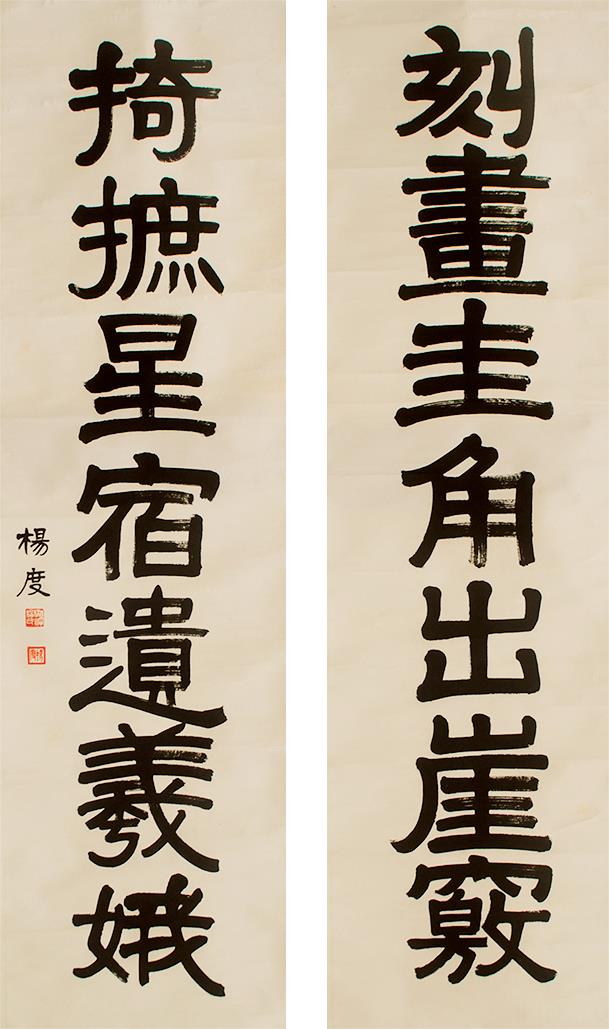 刻畫圭角出崖竅
掎摭星宿遺羲娥
楊度